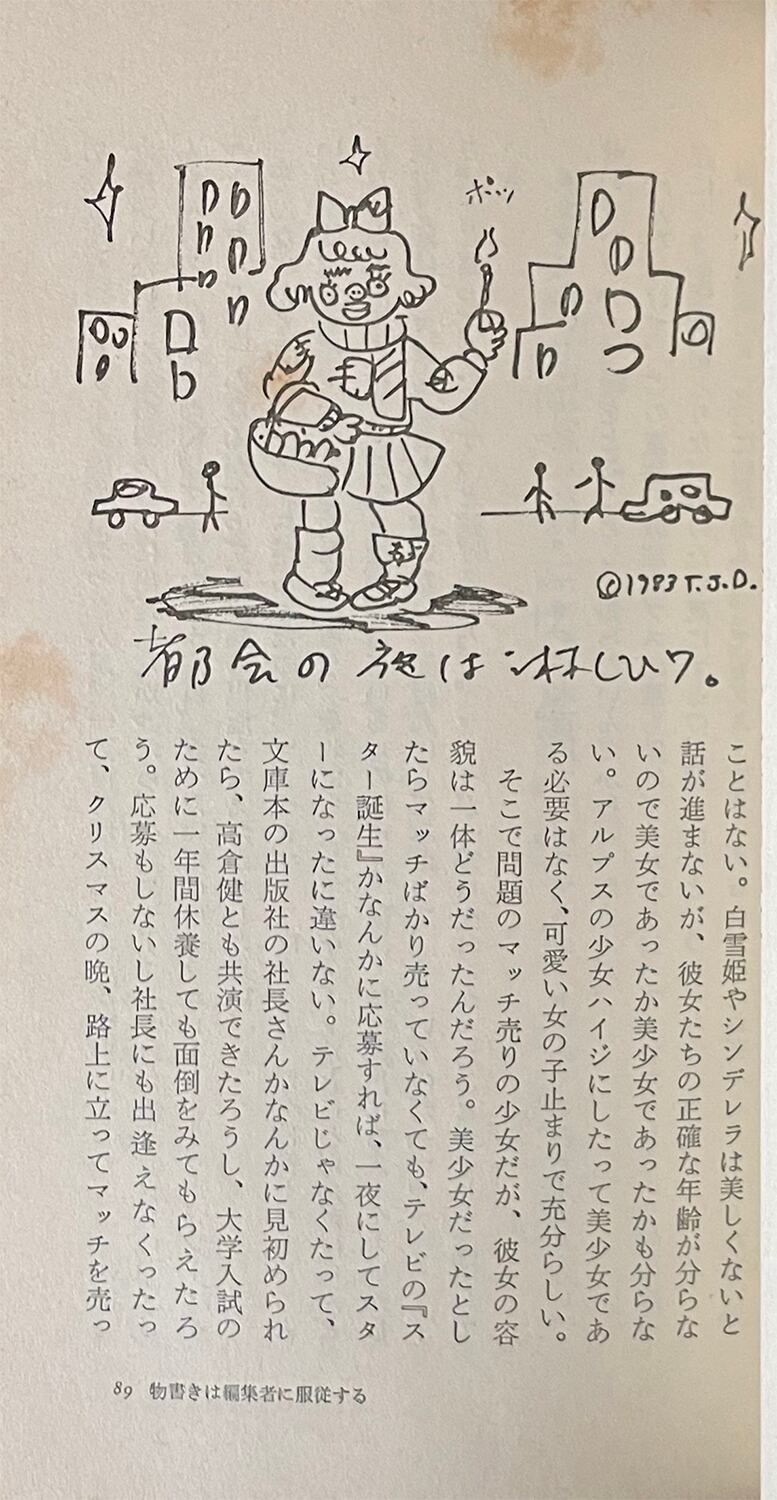 ポッ
©1983 T.J.D.
都会の夜は淋しひワ。
ことはない。白雪姫やシンデレラは美しくないと
話が進まないが、彼女たちの正確な年齢が分らな
いので美女であったか美少女であったかも分らな
い。アルプスの少女ハイジにしたって美少女であ
る必要はなく、可愛い女の子止まりで充分らしい。
そこで問題のマッチ売りの少女だが、彼女の容
貌は一体どうだったんだろう。美少女だったとし
たらマッチばかり売っていなくても、テレビの『ス
ター誕生』かなんかに応募すれば、一夜にしてスタ
ーになったに違いない。テレビじゃなくたって、
文庫本の出版社の社長さんかなんかに見初められ
たら、高倉健とも共演できたろうし、大学入試の
ために一年間休養しても面倒をみてもらえたろ
う。応募もしないし社長にも出逢えなくったっ
て、クリスマスの晩、路上に立ってマッチを売っ
89 物書きは編集者に服従する